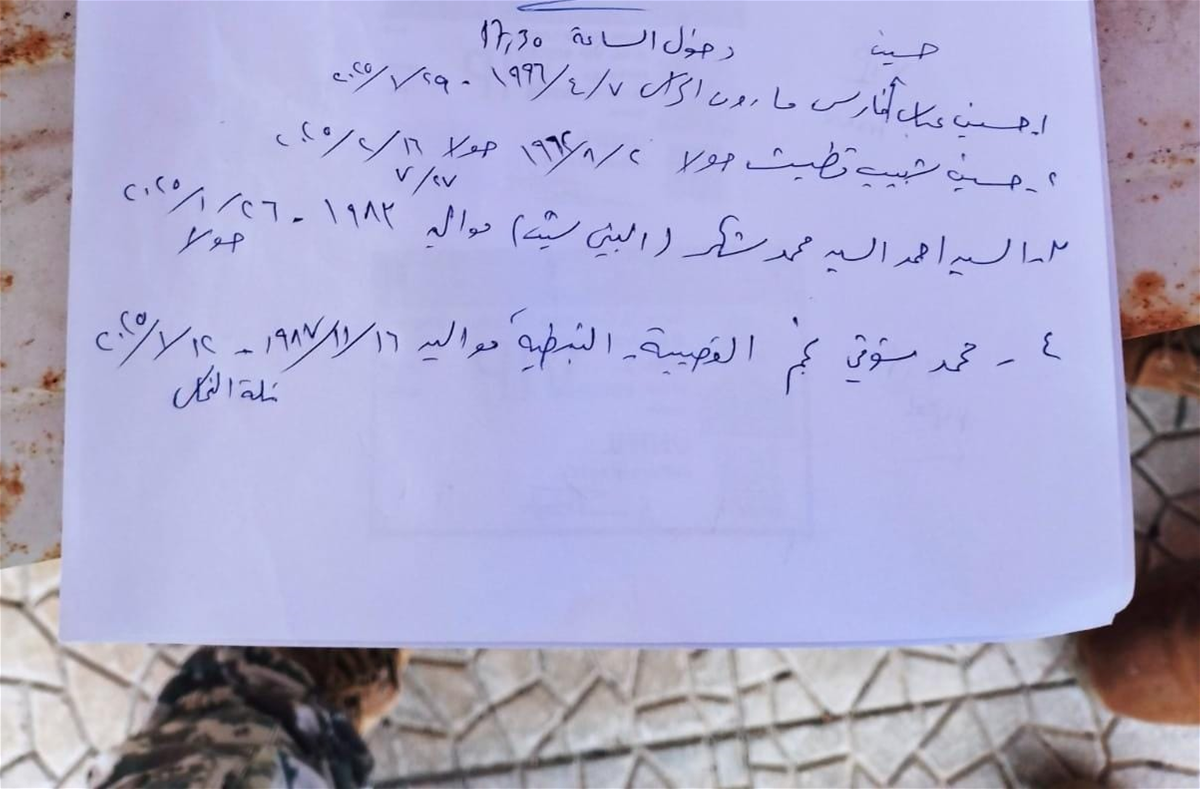 حسين دخول الساعة 17,30
١- حسين عباس فارس مارون الراس ٧/٤/١٩٩٦ - ٢٩/١/٢٠٢٥
٢- حسين شبيب قطيش حولا ٢/٨/١٩٦٢ حولا ١٦/٢/٢٠٢٥
٧/٢٧
٣- السيد احمد السيد محمد شكر (النبي شيت) مواليد ١٩٨٢ - ٢٦/١/٢٠٢٥
حولا
٤- محمد شوقي نجم القصيبة - النبطية مواليد ١٦/١١/١٩٨٧ - ١٢/١/٢٠٢٥